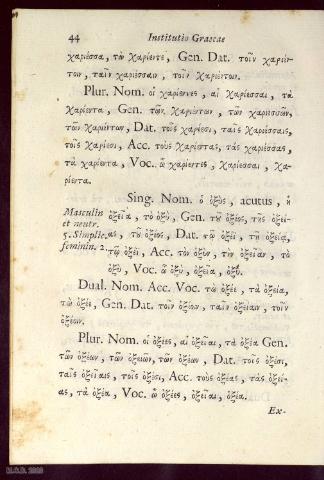 44 Institutio Graecae
χαριέσσα, τὼ χαρίεντε, Gen. Dat. τοῖν χαριέν-
τοιν, ταῖν χαριέσσαιν, τοῖν χαριέντοιν.
Plur. Nom. οἱ χαρίεντες, αἱ χαρίεσσαι, τὰ
χαρίεντα, Gen. τῶν χαριέντων, τῶν χαριεσσῶν,
τῶν χαριέντων, Dat. τοῖς χαρίεσι, ταῖς χαριέσσαις,
τοῖς χαρίεσι, Acc. τοὺς χαρίεντας, τὰς χαριέσσας,
τὰ χαρίεντα, Voc. ὦ χαρίεντες, χαρίεσσαι, χα-
ρίεντα.
Sing. Nom. ὁ ὀξὺς, acutus, ἡ
Masculis
et neutr.
5. Simplic.
feminin. 2.
ὀξεῖα, τὸ ὀξὺ, Gen. τοῦ ὀξέος, τῆς ὀξεί-
ας, τοῦ ὀξέος, Dat. τῷ ὀξέϊ, τῇ ὀξείᾳ,
τῷ ὀξέϊ, Acc. τὸν ὀξὺν, τὴν ὀξεῖαν, τὸ
ὀξὺ, Voc. ὦ ὀξὺ, ὀξεῖα, ὀξύ.
Dual. Nom. Acc. Voc. τὼ ὀξέε, τὰ ὀξεία,
τὼ ὀξέε, Gen. Dat. τοῖν ὀξέοιν, ταῖν ὀξείαιν, τοῖν
ὀξέοιν.
Plur. Nom. οἱ ὀξέες, αἱ ὀξεῖαι, τὰ ὀξέα Gen.
τῶν ὀξέων, τῶν ὀξειῶν, τῶν ὀξέων, Dat. τοῖς ὀξέσι,
ταῖς ὀξείαις, τοῖς ὀξέσι, Acc. τοὺς ὀξέας, τὰς ὀξεί-
ας, τὰ ὀξέα, Voc. ὦ ὀξέες, ὀξεῖαι, ὀξέα.
Ex-